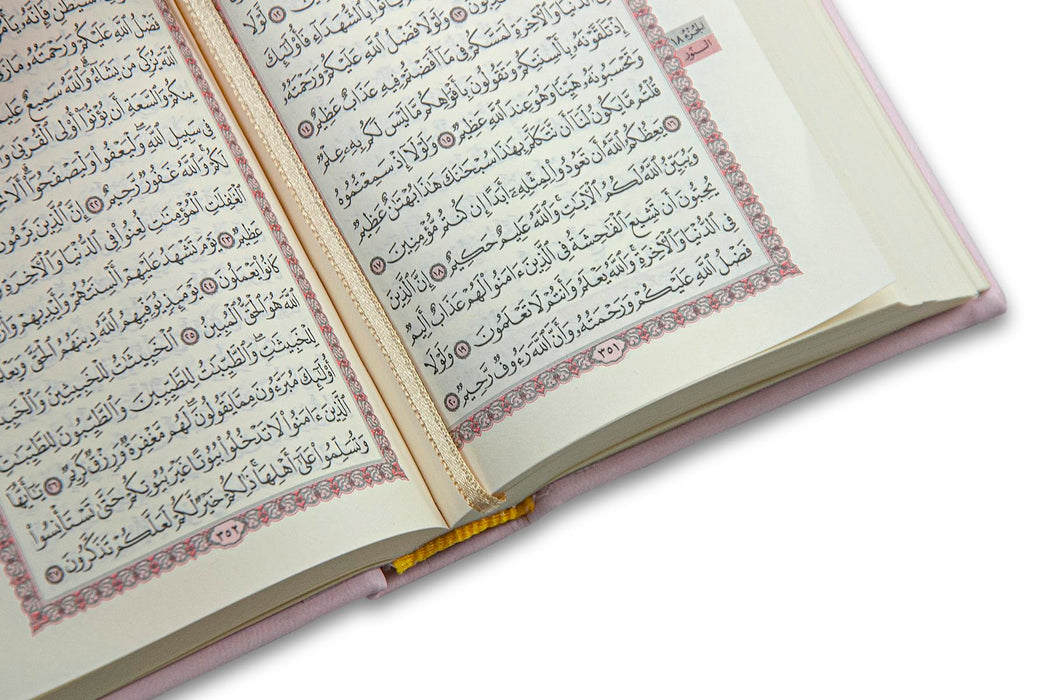 الجُزءُ ١٨
النّور
١٢ لَّوْلَا
بِٱلشُّهَدَآءِ فَأُو۟لَـٰٓئِكَ
١٣ وَلَوْلَا فَضْلُ ٱللَّهِ عَلَيْكُمْ وَرَحْمَتُهُۥ
ٱلدُّنْيَا وَٱلْـَٔاخِرَةِ لَمَسَّكُمْ فِى مَآ أَفَضْتُمْ فِيهِ عَذَابٌ عَظِيمٌ ١٤
إِذْ تَلَقَّوْنَهُۥ بِأَلْسِنَتِكُمْ وَتَقُولُونَ بِأَفْوَاهِكُم مَّا لَيْسَ لَكُم بِهِۦ عِلْمٌ
وَتَحْسَبُونَهُۥ هَيِّنًا وَهُوَ عِندَ ٱللَّهِ عَظِيمٌ ١٥ وَلَوْلَآ إِذْ سَمِعْتُمُوهُ
قُلْتُم مَّا يَكُونُ لَنَآ أَن نَّتَكَلَّمَ بِهَـٰذَا سُبْحَـٰنَكَ هَـٰذَا بُهْتَـٰنٌ عَظِيمٌ
١٦ يَعِظُكُمُ ٱللَّهُ أَن تَعُودُوا۟ لِمِثْلِهِۦٓ أَبَدًا إِن كُنتُم مُّؤْمِنِينَ ١٧
وَيُبَيِّنُ ٱللَّهُ لَكُمُ ٱلْـَٔايَـٰتِ وَٱللَّهُ عَلِيمٌ حَكِيمٌ ١٨ إِنَّ ٱلَّذِينَ
يُحِبُّونَ أَن تَشِيعَ ٱلْفَـٰحِشَةُ فِى ٱلَّذِينَ ءَامَنُوا۟ لَهُمْ عَذَابٌ أَلِيمٌ
فِى ٱلدُّنْيَا وَٱلْـَٔاخِرَةِ وَٱللَّهُ يَعْلَمُ وَأَنتُمْ لَا تَعْلَمُونَ ١٩ وَلَوْلَا
فَضْلُ ٱللَّهِ عَلَيْكُمْ وَرَحْمَتُهُۥ وَأَنَّ ٱللَّهَ رَءُوفٌ رَّحِيمٌ ٢٠
٣٥١
فَضْلُ ٱللَّهِ عَلَيْكُمْ وَرَحْمَتُهُۥ
ٱللَّهَ يُزَكِّى مَن يَشَآءُ وَٱللَّهُ سَمِيعٌ
مِنكُمْ وَٱلسَّعَةِ أَن يُؤْتُوٓا۟ أُو۟لِى ٱلْقُرْبَىٰ
فِى سَبِيلِ ٱللَّهِ وَلْيَعْفُوا۟ وَلْيَصْفَحُوٓا۟ أَلَا
لَكُمْ وَٱللَّهُ غَفُورٌ رَّحِيمٌ ٢٢ إِنَّ ٱلَّذِينَ يَرْمُونَ
ٱلْغَـٰفِلَـٰتِ ٱلْمُؤْمِنَـٰتِ لُعِنُوا۟ فِى ٱلدُّنْيَا وَٱلْـَٔاخِرَةِ
عَظِيمٌ ٢٣ يَوْمَ تَشْهَدُ عَلَيْهِمْ أَلْسِنَتُهُمْ وَأَيْدِيهِمْ
كَانُوا۟ يَعْمَلُونَ ٢٤ يَوْمَئِذٍ يُوَفِّيهِمُ ٱللَّهُ دِينَهُمُ ٱلْحَقَّ
ٱللَّهَ هُوَ ٱلْحَقُّ ٱلْمُبِينُ ٢٥ ٱلْخَبِيثَـٰتُ لِلْخَبِيثِينَ
لِلْخَبِيثَـٰتِ وَٱلطَّيِّبَـٰتُ لِلطَّيِّبِينَ وَٱلطَّيِّبُونَ لِلطَّيِّبَـٰتِ
أُو۟لَـٰٓئِكَ مُبَرَّءُونَ مِمَّا يَقُولُونَ لَهُم مَّغْفِرَةٌ وَرِزْقٌ كَرِيمٌ ٢٦ يَـٰٓأَيُّهَا
ٱلَّذِينَ ءَامَنُوا۟ لَا تَدْخُلُوا۟ بُيُوتًا غَيْرَ بُيُوتِكُمْ حَتَّىٰ تَسْتَأْنِسُوا۟
وَتُسَلِّمُوا۟ عَلَىٰٓ أَهْلِهَا ذَٰلِكُمْ خَيْرٌ لَّكُمْ لَعَلَّكُمْ تَذَكَّرُونَ ٢٧
٣٥٢